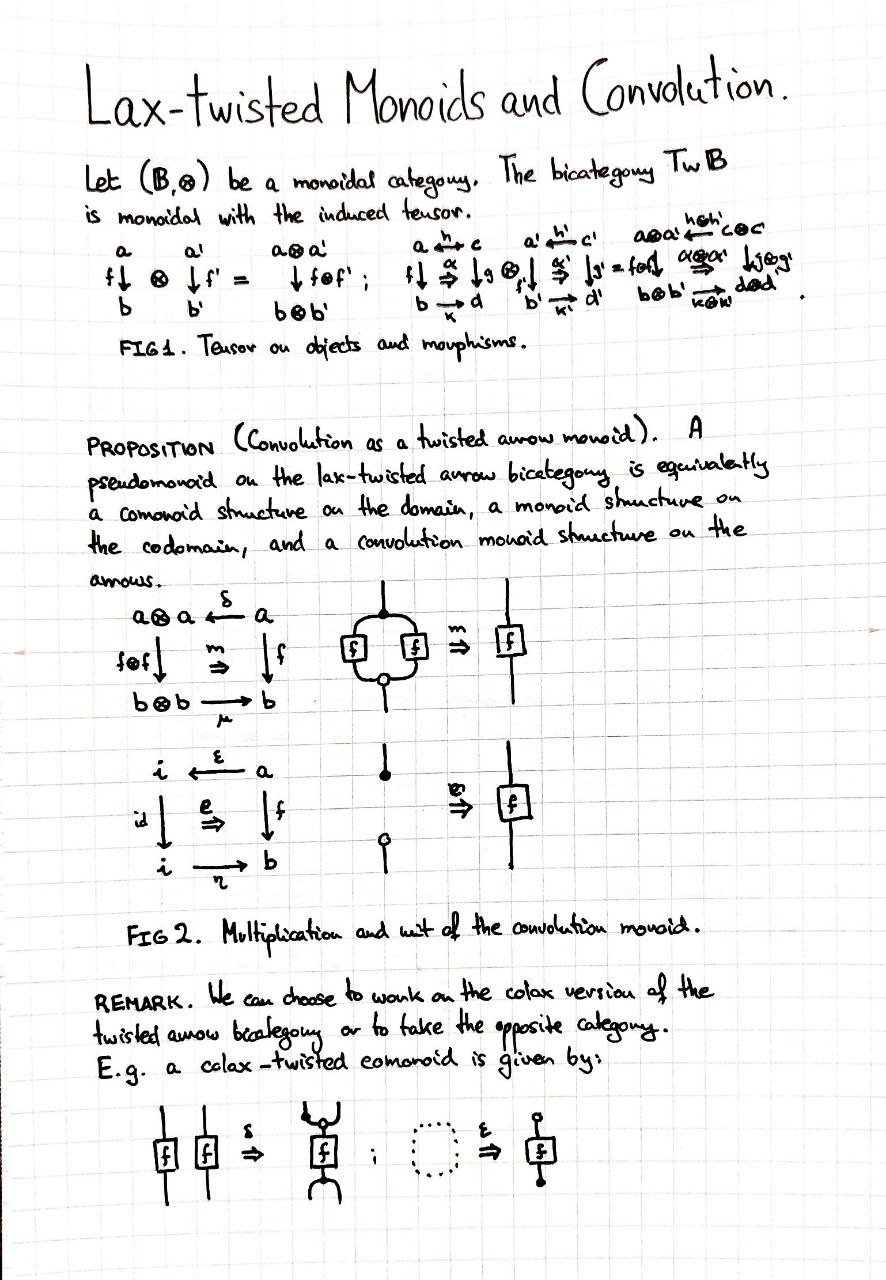 Lax-twisted Monoids and Convolution.
Let (B,⊗) be a monoidal category. The bicategory Tw B
is monoidal with the induced tensor.
a a' a⊗a' a h c a' h' c' a⊗a' h⊗h' c⊗c'
f ⊗ f' = f⊗f' ; f α g ⊗ f' α' g' = f⊗f' α⊗α' g⊗g'
b b' b⊗b' b k d b' k' d' b⊗b' k⊗k' d⊗d' .
FIG 1. Tensor on objects and morphisms.
PROPOSITION (Convolution as a twisted arrow monoid). A
pseudomonoid on the lax-twisted arrow bicategory is equivalently
a comonoid structure on the domain, a monoid structure on
the codomain, and a convolution monoid structure on the
arrows.
a⊗a ← δ a
f⊗f ↓ m ⇒ ↓ f f f m ⇒ f
b⊗b → μ b
i ← ε a
id ↓ e ⇒ ↓ f e ⇒ f
i → η b
FIG 2. Multiplication and unit of the convolution monoid.
REMARK. We can choose to work on the colax version of the
twisted arrow bicategory or to take the opposite category.
E.g. a colax-twisted comonoid is given by:
f f δ ⇒ f ; ε ⇒ f